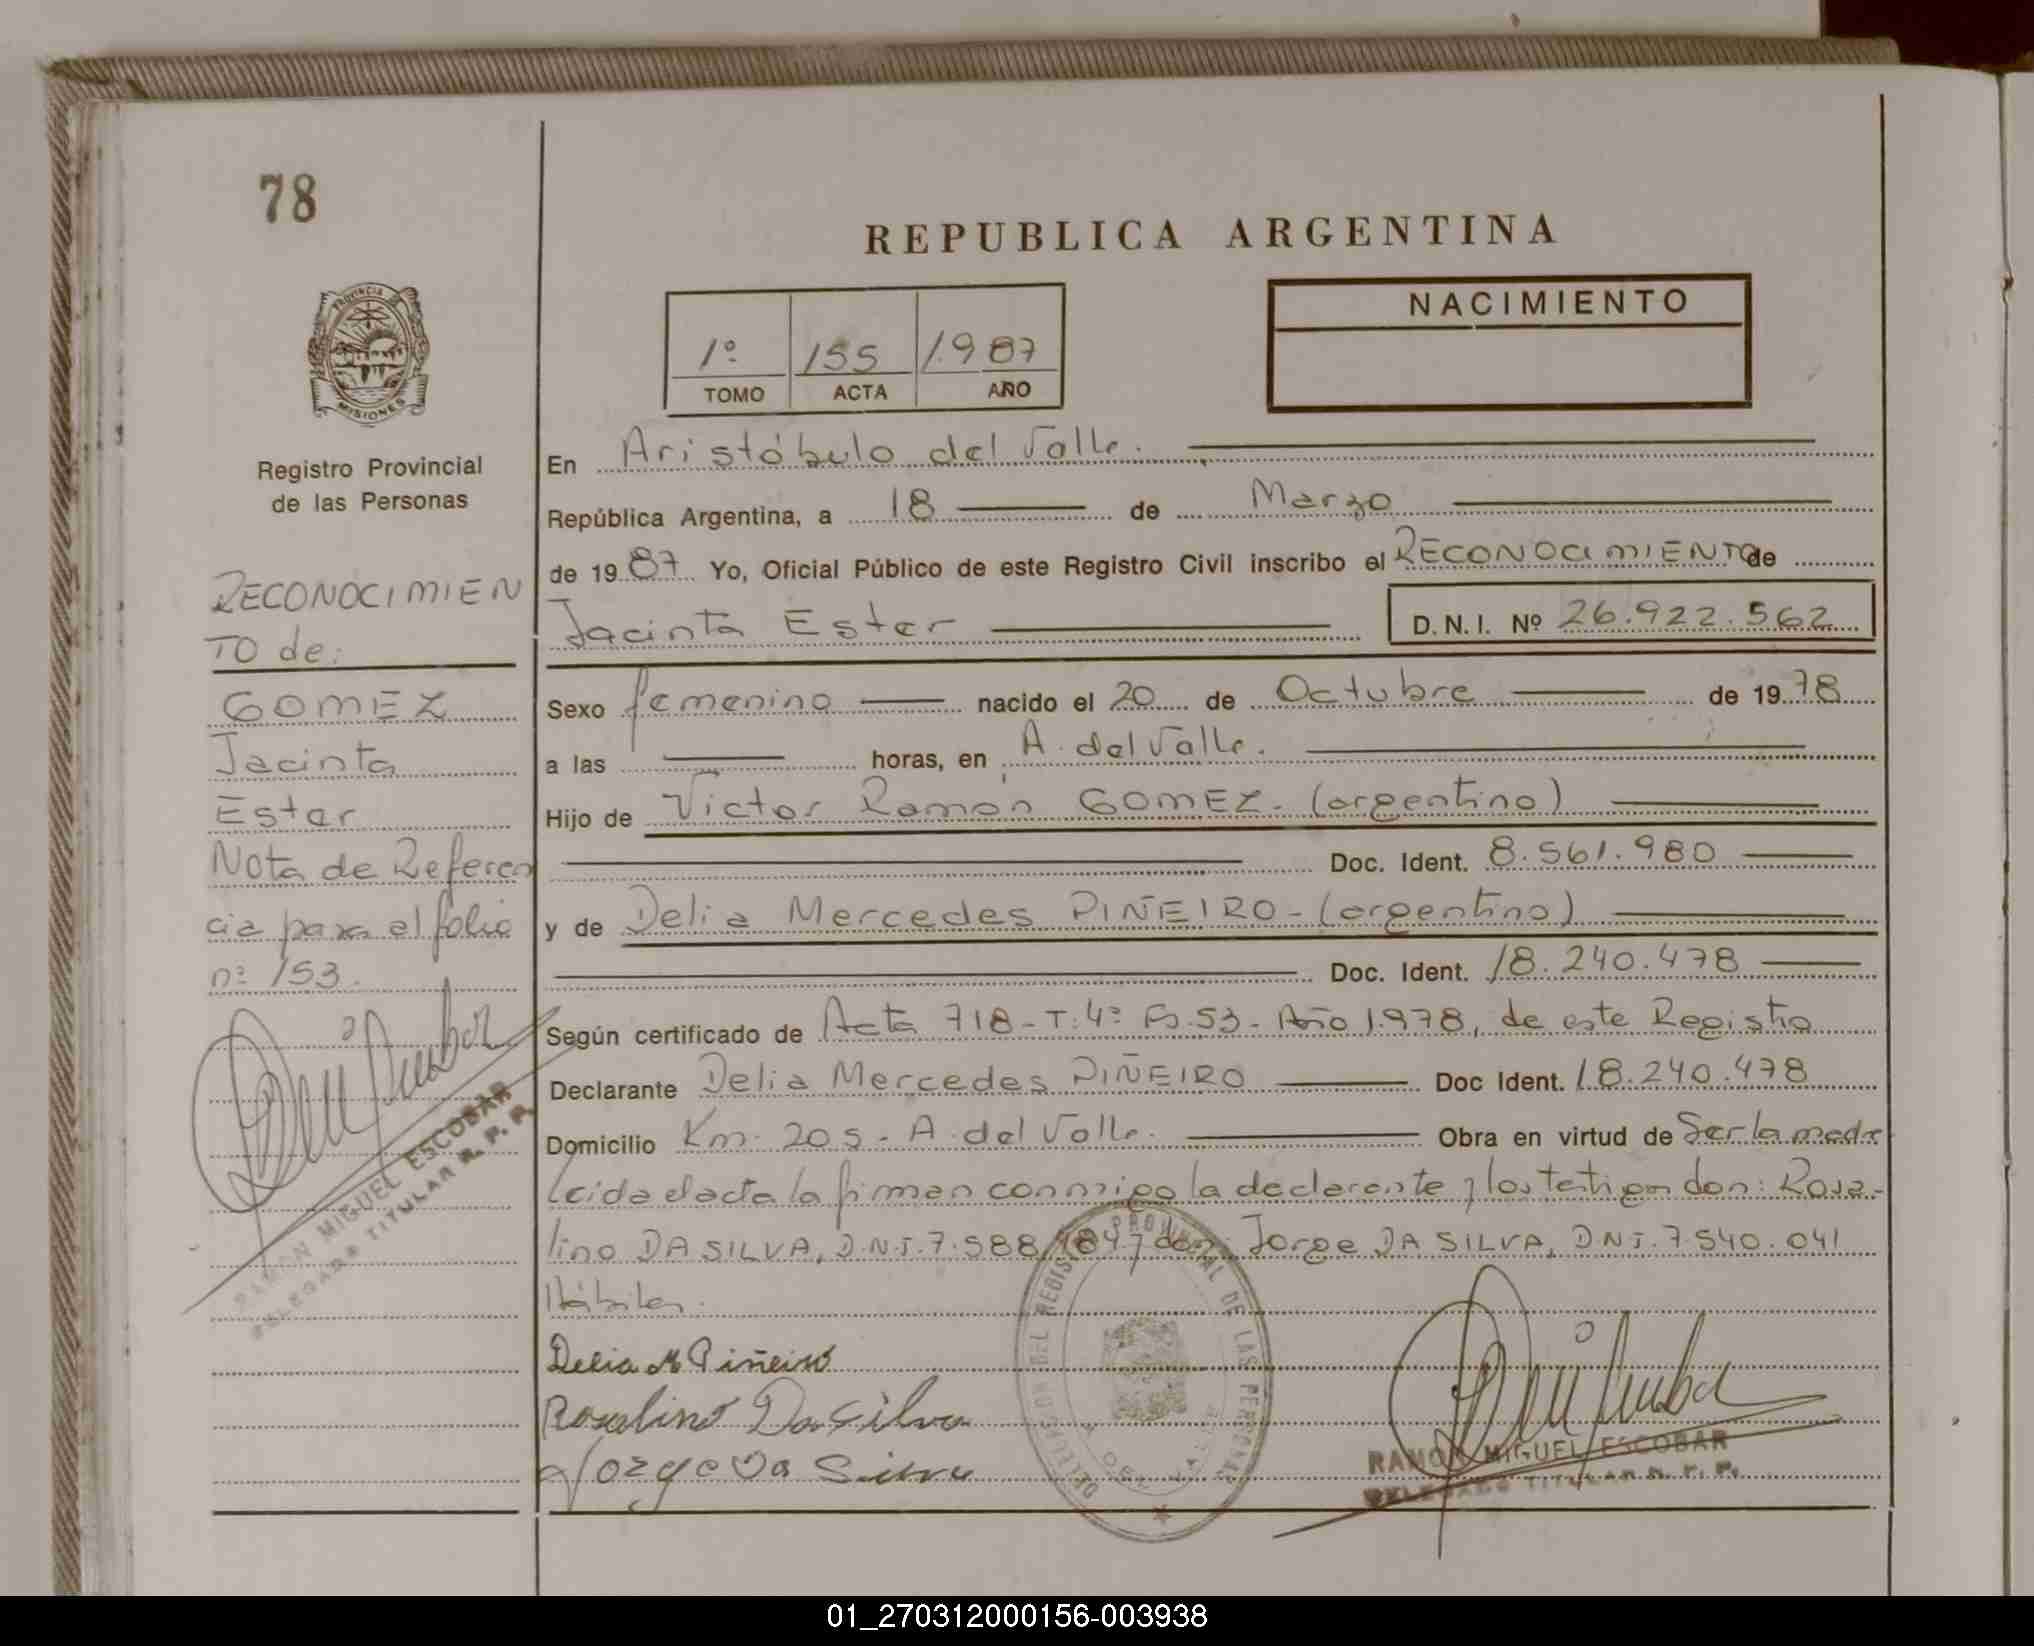 78
REPUBLICA ARGENTINA
PROVINCIA DE
MISIONES
Registro Provincial
de las Personas
1º 155 1.987
TOMO ACTA AÑO
NACIMIENTO
En Aristóbulo del Valle.
República Argentina, a 18 de Marzo
de 1987 Yo, Oficial Público de este Registro Civil inscribo el RECONOCIMIENTO de
Jacinta Ester D.N.I. Nº 26.922.562
Sexo femenino nacido el 20 de Octubre de 1978
a las horas, en A. del Valle.
Hijo de Victor Ramón GOMEZ. (argentino)
Doc. Ident. 8.561.980
y de Delia Mercedes PIÑEIRO - (argentino)
Doc. Ident. 18.240.478
Según certificado de Acta 718 - T: 4º Fs. 53 - Año 1.978, de este Registro
Declarante Delia Mercedes PIÑEIRO Doc Ident. 18.240.478
Domicilio Km. 205 - A. del Valle. Obra en virtud de Ser la madre
leida el acta la firman conmigo la declarante y los testigos don: Rosa-
lino DA SILVA, D.N.I. 7.588.184 y don Jorge DA SILVA, D.N.I. 7.540.041
Hábiles.
Delia M Piñeiro
Rosalino Da Silva
Jorge Da Silva
DELEGACION DEL REGISTRO PROVINCIAL DE LAS PERSONAS
RAMON MIGUEL ESCOBAR
DELEGADO TITULAR R. P. P.
RECONOCIMIEN
TO de:
GOMEZ
Jacinta
Ester
Nota de Referen
cia para el folio
nº 153.
RAMON MIGUEL ESCOBAR
DELEGADO TITULAR R. P. P.
01_270312000156-003938